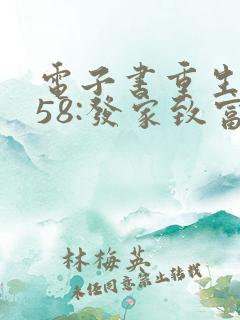 電子書重生
58:發家致富
林梅英
未經同意禁止转载